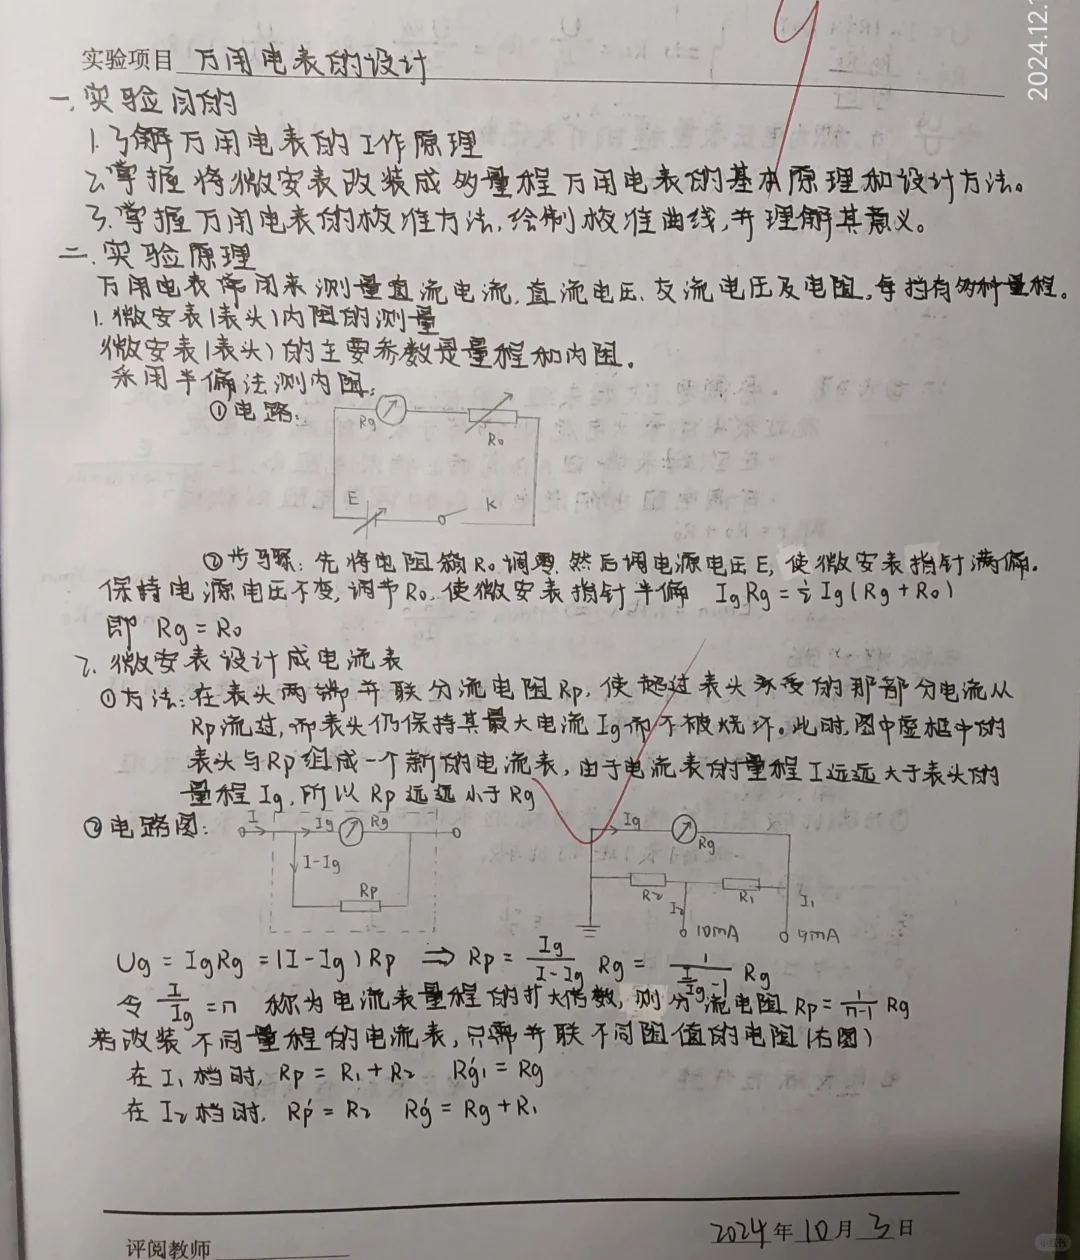 2024.12.1
9
实验项目 万用电表的设计
一.实验目的
1.了解万用电表的工作原理
2.掌握将微安表改装成多量程万用电表的基本原理和设计方法。
3.掌握万用电表的校准方法,绘制校准曲线,并理解其意义。
二.实验原理
万用电表常用来测量直流电流.直流电压.交流电压及电阻,每挡有多种量程.
1.微安表(表头)内阻的测量
微安表(表头)的主要参数是量程和内阻.
采用半偏法测内阻:
①电路:
Rg
R₀
E
K
②步骤:先将电阻箱R₀调零.然后调电源电压E,使微安表指针满偏.
保持电源电压不变,调节R₀.使微安表指针半偏 IgRg=½Ig(Rg+R₀)
即 Rg=R₀
2.微安表设计成电流表
①方法:在表头两端并联分流电阻Rp,使超过表头承受的那部分电流从
Rp流过,而表头仍保持其最大电流Ig而不被烧坏。此时,图中虚框中的
表头与Rp组成一个新的电流表,由于电流表的量程I远远大于表头的
量程Ig,所以Rp远远小于Rg
②电路图:
I Ig Rg
I-Ig
Rp
Ig Rg
R₂ R₁
I₂ I₁
10mA 5mA
Ug=IgRg=(I-Ig)Rp ⇒ Rp=Ig/(I-Ig) Rg=1/(I/Ig-1) Rg
令 I/Ig=n 称为电流表量程的扩大倍数,则分流电阻Rp=1/(n-1) Rg
若改装不同量程的电流表,只需并联不同阻值的电阻(右图)
在I₁档时,Rp=R₁+R₂ Rg₁'=Rg
在I₂档时,Rp'=R₂ Rg'=Rg+R₁
2024年10月3日
评阅教师